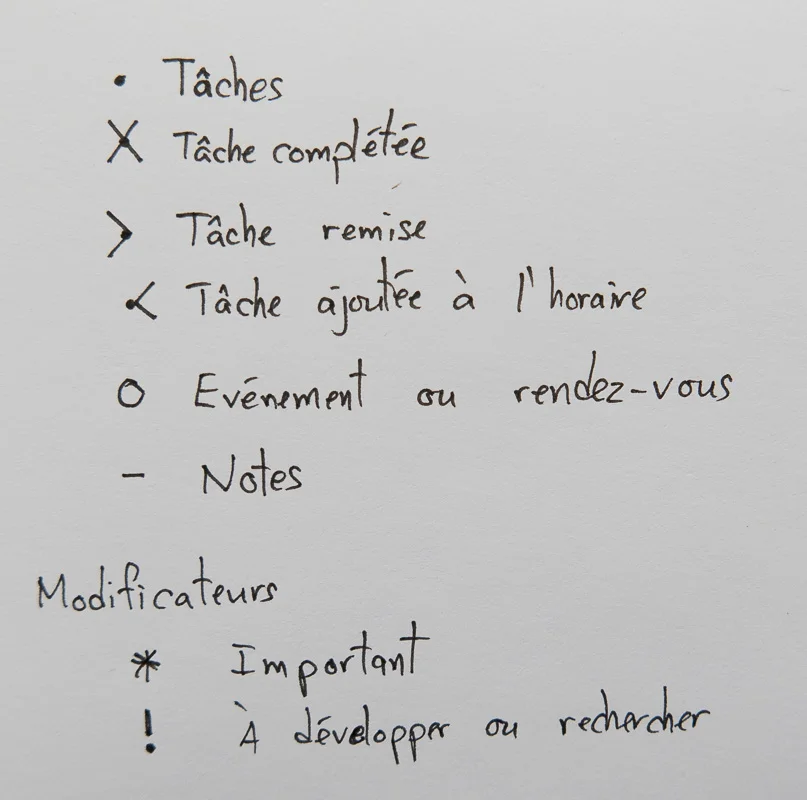 • Tâches
X Tâche complétée
> Tâche remise
< Tâche ajoutée à l'horaire
O Evénement ou rendez-vous
- Notes
Modificateurs
* Important
! À développer ou rechercher